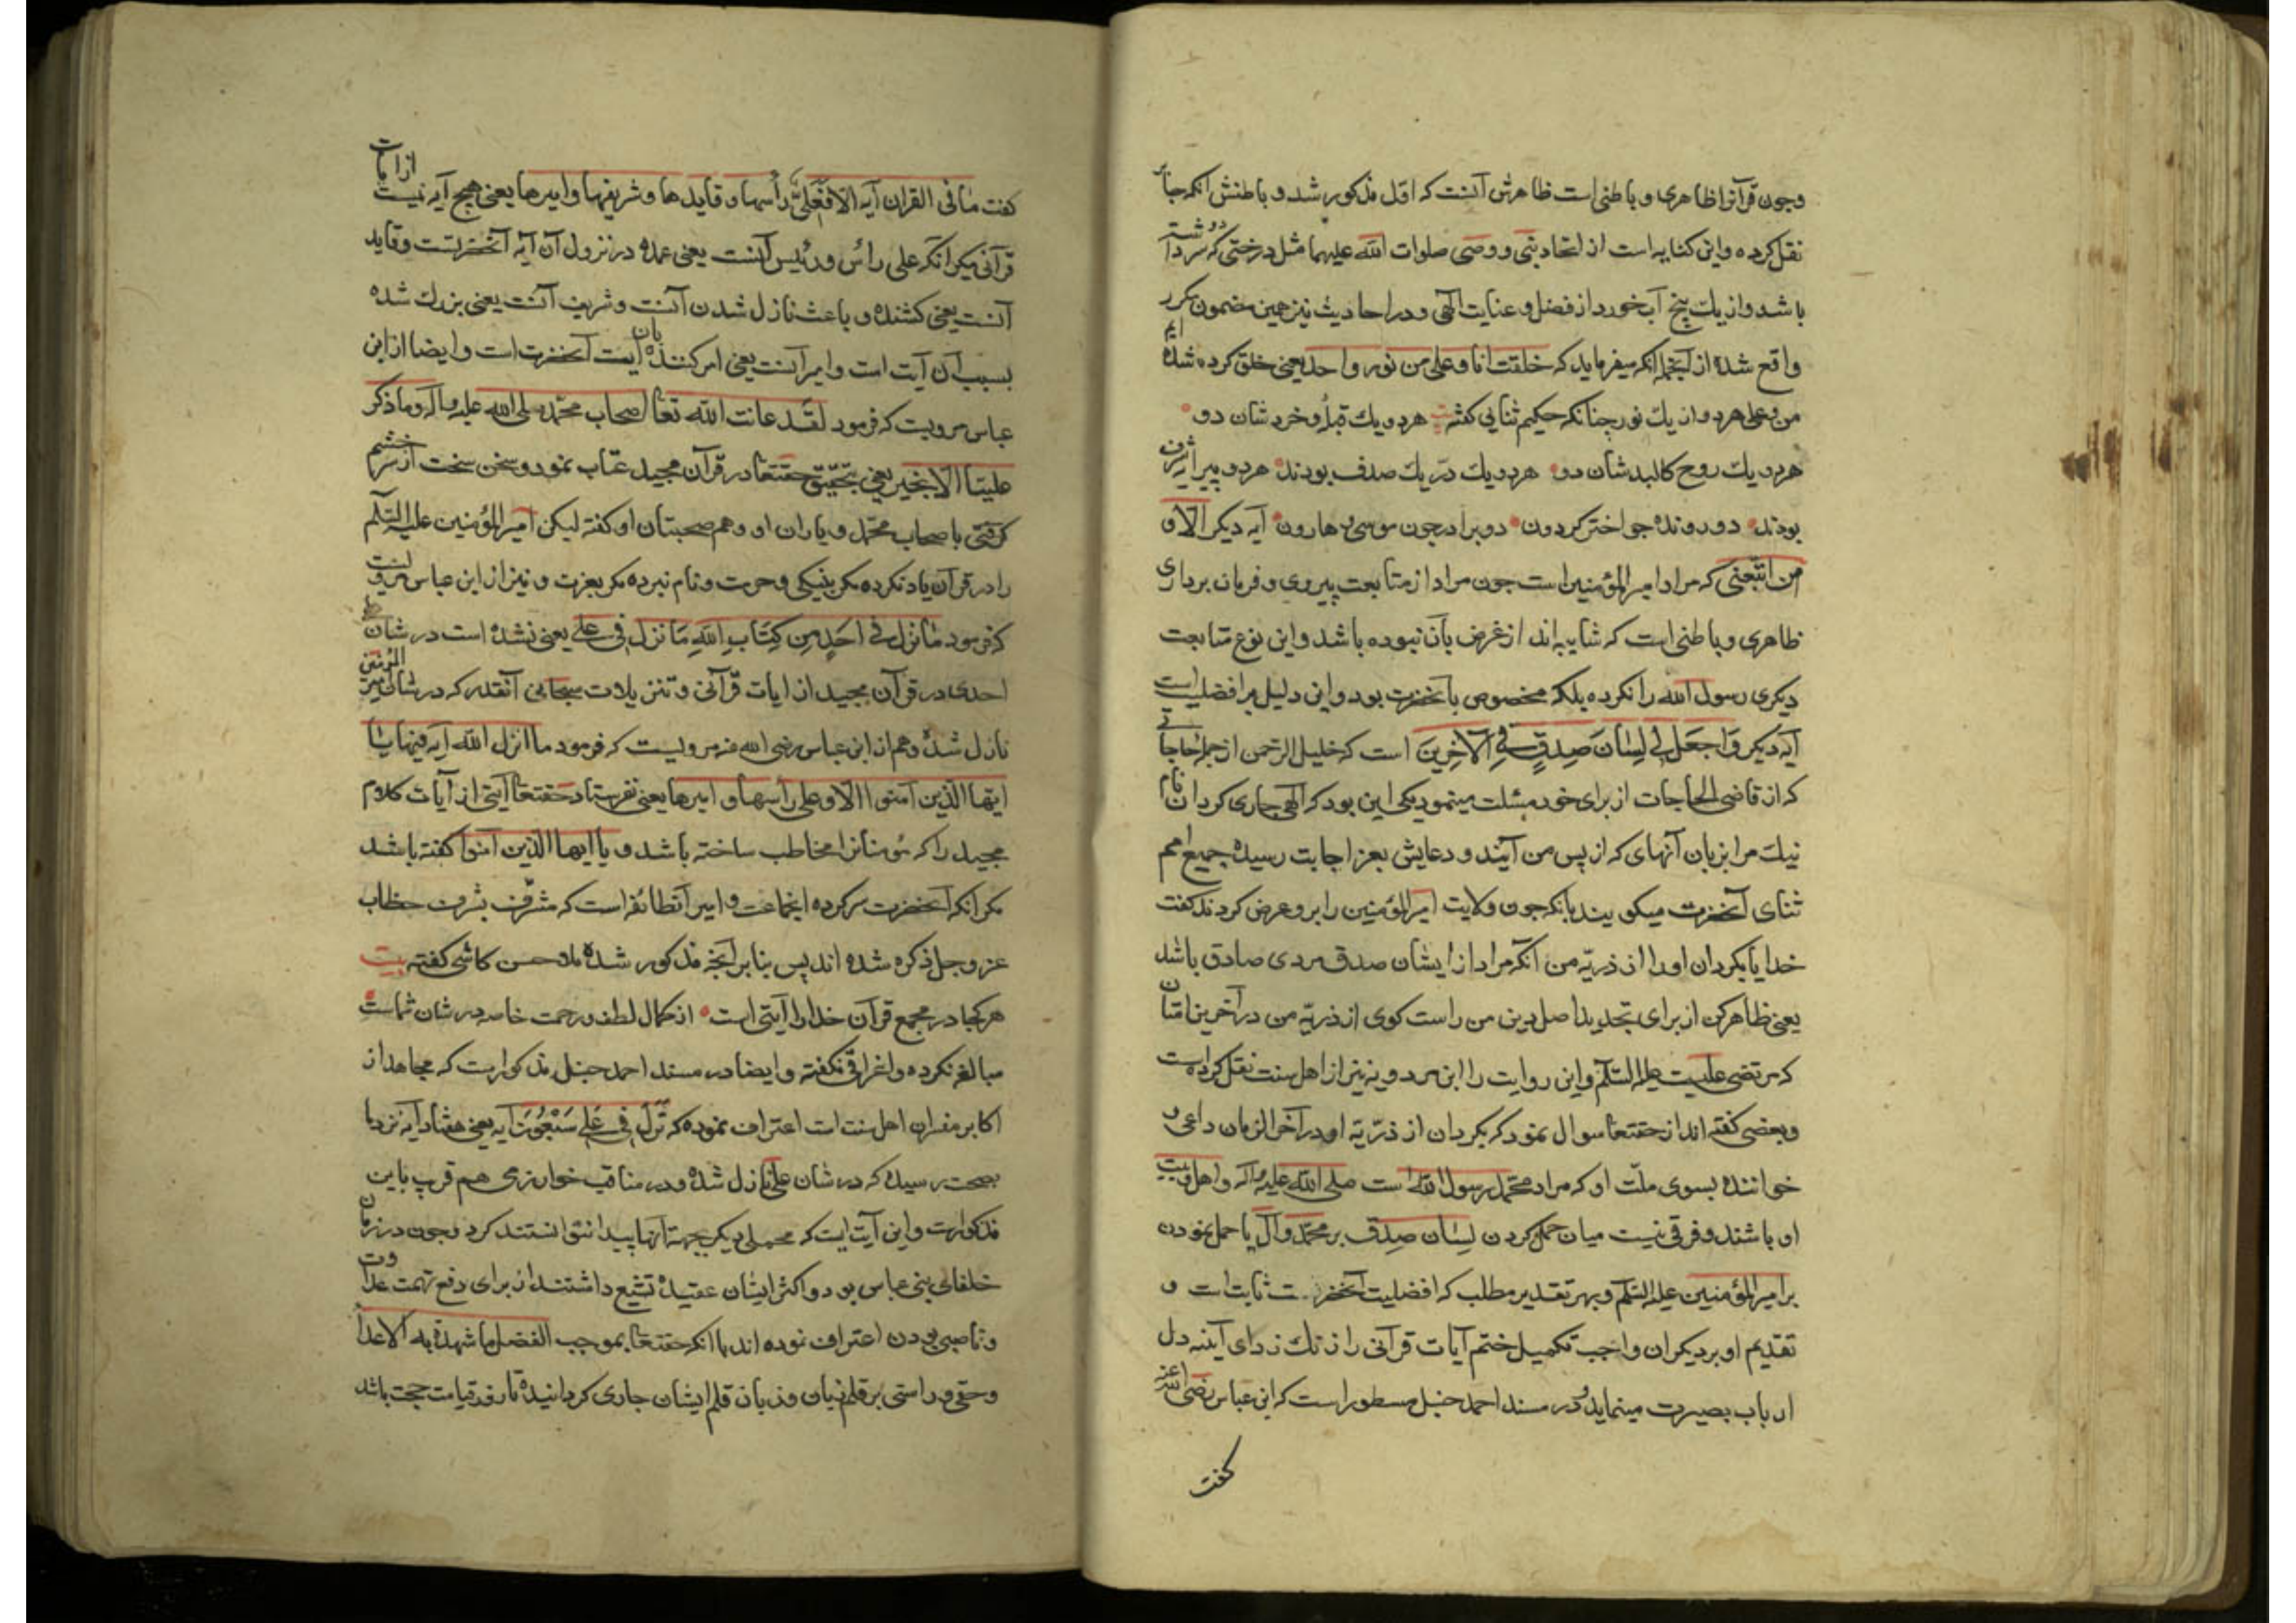 وجون قرآنرا ظاهری و باطنی است ظاهرش آنست که اول مذکور شد و باطنش آنکه جابر
نقل کرده و این کنایه است از اتحاد نبی و وصی صلوات الله علیهما مثل درختی که سر دوشته
باشد و از یك بیخ آب خورد از فضل و عنایت الهی و در احادیث نیز همین مضمون مکرر
واقع شده از آنجمله آنکه میفرماید که خلقت انا و علی من نور واحد یعنی خلق کرده شده ایم
من و علی هر دو از یك نور جنانکه حکیم ثنایی کفته بیت هر دو یك قبله و خردشان دو
هر دو یك روح کالبدشان دو هر دو یك در یك صدف بودند هر دو پیرایه شرف
بودند دو رونده جو اختر کردون دو برادر جون موسی و هارون آیه دیکر الا و
من اتبعنی که مراد امیر المؤمنین است جون مراد از متابعت پیروی و فرمان برداری
ظاهری و باطنی است که شایبه اند از غرض بآن نبوده باشد و این نوع متابعت
دیکری رسول الله را نکرده بلکه مخصوص بآنحضرت بود و این دلیل بر افضلیت است
آیه دیکر وَاجعَل لی لِسٰانَ صِدقٍ فِی الآخِرینَ است که خلیل الرحمن از جمله حاجاتی
که از قاضی الحاجات از برای خود مسئلت مینمود یکی این بود که الهی جاری کردان نام
نیك مرا بزبان آنهای که از پس من آیند و دعایش بعز اجابت رسیده جمیع امم
ثنای آنحضرت میکویند بآنکه جون ولایت امیر المؤمنین را برو عرض کردند کفت
خدایا بکردان او را از ذریّه من آنکه مراد از ایشان صدق مردی صادق باشد
یعنی ظاهر کن از برای تجدید اصل دین من راست کوی از ذریّه من در آخرین امتان
که مرتضی علیست علیه السلام و این روایت را ابن مردویه نیز از اهل سنت نقل کرده است
و بعضی کفته اند از حقتعا سوال نمود که بکردان از ذرّیّه او در آخر الزمان داعی و
خواننده بسوی ملّت او که مراد محمّد رسول الله است صلی الله علیه وآله و اهل بیت
او باشند و فرقی نیست میان حمل کردن لِسٰان صِدق بر محمّد و آل یا حمل نمودن
بر امیر المؤمنین علیه السلام و بهر تقدیر مطلب که افضلیت آنحضرت ثابت است و
تقدیم او بر دیکران واجب تکمیل ختم آیات قرآنی را زنك زدای آینه دل
ارباب بصیرت مینماید و در مسند احمد حنبل مسطور است که ابن عباس رضی الله عنه
کفت
کفت مٰا فی القران آیه الا فَعَلیٌّ رأسها و قایدها و شریفها و امیرها یعنی هیچ آیه نیست از ایات
قرآنی مکر آنکه علی رأس و رئیس آنست یعنی عمده در نزول آن آیه آنحضرتست و قاید
آنست یعنی کشنده و باعث نازل شدن آنست و شریف آنست یعنی بزرك شده
بسبب آن آیت است و امیر آنست یعنی امر کننده بآن آیت آنحضرت است و ایضا از ابن
عباس مرویت که فرمود لقد عاتب الله تعا اصحاب محمّد صلی الله علیه وآله وما ذکر
علیّا الا بخیر یعنی بتحقیق حقتعا در قرآن مجید عتاب نمود و سخن سخت از سر خشم
کرفتی با صحاب محمّد و یاران او و هم صحبتان او کفته لیکن امیر المؤمنین علیه السلام
را در قرآن یاد نکرده مکر بنیکی و حرمت و نام نبرده مکر بعزت و نیز از ابن عباس مرویست
که فرمود مٰا نزل فی اَحَدٍ مِن کِتٰابِ اللهِ مٰا نزل فی علی یعنی نشده است در شان
احدی در قرآن مجید از ایات قرآنی و تنزیلات سبحانی آنقدر که در شان امیر المؤمنین
نازل شده و هم از ابن عباس رضی الله عنه مرویست که فرمود ما انزل الله آیه فیها یا
ایها الذین آمنوا الا و علی رأسها و امیرها یعنی نفرستاد حقتعا آیتی از آیات کلام
مجید را که مؤمنانرا مخاطب ساخته باشد و یا ایها الذین آمنوا کفته باشد
مکر آنکه آنحضرت سرکرده آنجماعت و امیر آنطائفه است که مشرّف بشرف خطاب
عز و جل ذکره شده اند پس بنابر آنجه مذکور شده ملا حسن کاشی کفته بیت
هر کجا در مجمع قرآن خدا را آیتی است از کمال لطف و رحمت خاصه در شان شماست
مبالغه نکرده و اغراقی نکفته و ایضا در مسند احمد حنبل مذکور است که مجاهد از
اکابر مفسران اهل سنت است اعتراف نموده که نَزَلَ فی عَلی سَبْعُونَ آیه یعنی هفتاد آیه نزد ما
بصحت رسیده که در شان علی نازل شده و در مناقب خوارزمی هم قرب باین
مذکور است و این آیت ایست که محملی دیکر بجهة آنها پیدا نتوانستند کرد و جون در زمان
خلفای بنی عباس بود و اکثر ایشان عقیده تشیع داشتند از برای دفع تهمت عداوت
و ناصبی بودن اعتراف نموده اند با آنکه حقتعا بموجب الفضل ما شهدت به الاعدا
وحقی و راستی بر قلم زبان و زبان قلم ایشان جاری کردانیده تا روز قیامت حجت باشد